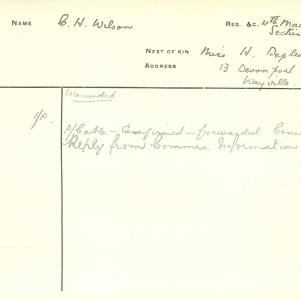 NAME C. H. Wilson REG. &c. 4th Mac
Sectio
NEXT OF KIN Miss H. Deple
ADDRESS 13 Devonport
Wayville.
Wounded
P/Cable - Confirmed - forwarded Com
Reply from Commrs. Information